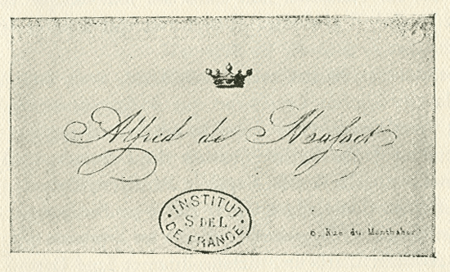 Alfred de Musset
INSTITUT
S DE L
DE FRANCE
6, Rue du Monthabor